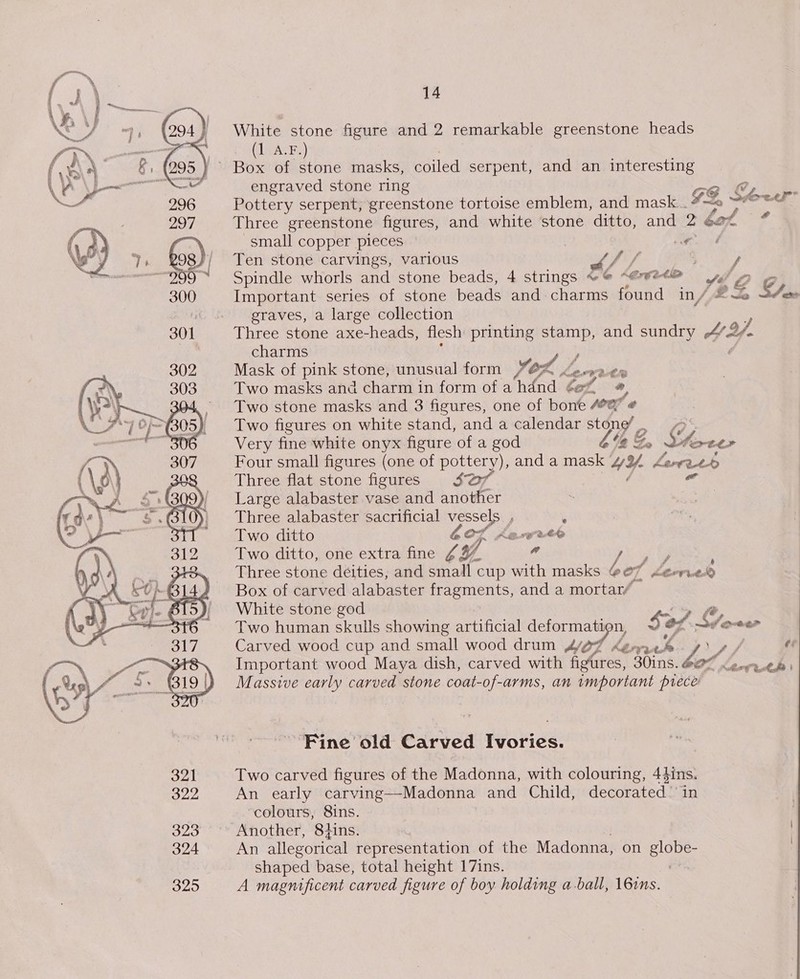 14
294 White stone figure and 2 remarkable greenstone heads
(1 A.F.)
295 Box of stone masks, coiled serpent, and an interesting
engraved stone ring
296 Pottery serpent, greenstone tortoise emblem, and mask
297 Three greenstone figures, and white stone ditto, and 2
small copper pieces
298 Ten stone carvings, various
299 Spindle whorls and stone beads, 4 strings
300 Important series of stone beads and charms found in
graves, a large collection
301 Three stone axe-heads, flesh printing stamp, and sundry
charms
302 Mask of pink stone, unusual form
303 Two masks and charm in form of a hand
304 Two stone masks and 3 figures, one of bone
305 Two figures on white stand, and a calendar stone
306 Very fine white onyx figure of a god
307 Four small figures (one of pottery), and a mask
308 Three flat stone figures
309 Large alabaster vase and another
310 Three alabaster sacrificial vessels
311 Two ditto
312 Two ditto, one extra fine
313 Three stone deities, and small cup with masks
314 Box of carved alabaster fragments, and a mortar
315 White stone god
316 Two human skulls showing artificial deformation,
317 Carved wood cup and small wood drum
318 Important wood Maya dish, carved with figures, 30ins.
319 Massive early carved stone coat-of-arms, an important piece
320
Fine old Carved Ivories.
321 Two carved figures of the Madonna, with colouring, 4½ins.
322 An early carving—Madonna and Child, decorated in
colours, 8ins.
323 Another, 8½ins.
324 An allegorical representation of the Madonna, on globe-
shaped base, total height 17ins.
325 A magnificent carved figure of boy holding a ball, 16ins.